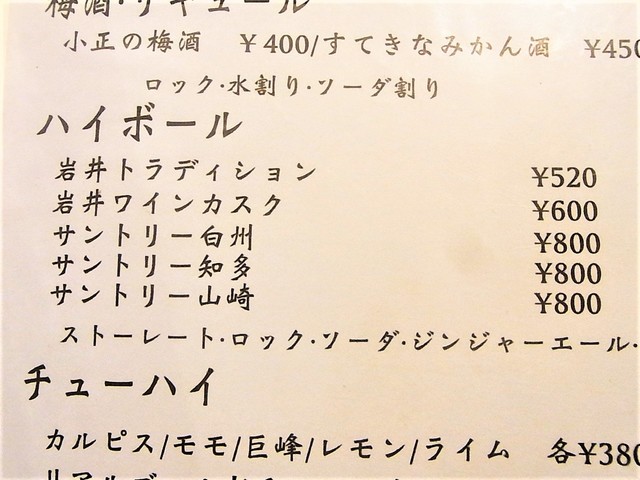 梅酒・リキュール
小正の梅酒 ￥400/すてきなみかん酒 ￥450
ロック・水割り・ソーダ割り
ハイボール
岩井トラディション ￥520
岩井ワインカスク ￥600
サントリー白州 ￥800
サントリー知多 ￥800
サントリー山崎 ￥800
ストーレート・ロック・ソーダ・ジンジャーエール・
チューハイ
カルピス/モモ/巨峰/レモン/ライム 各￥380